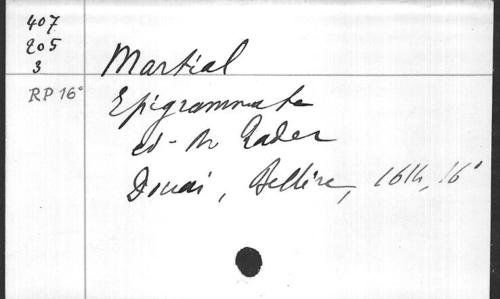 407
205
3
Martial
RP 16°
Epigrammata
ed. M Rader
Douai, Bellère, 16°